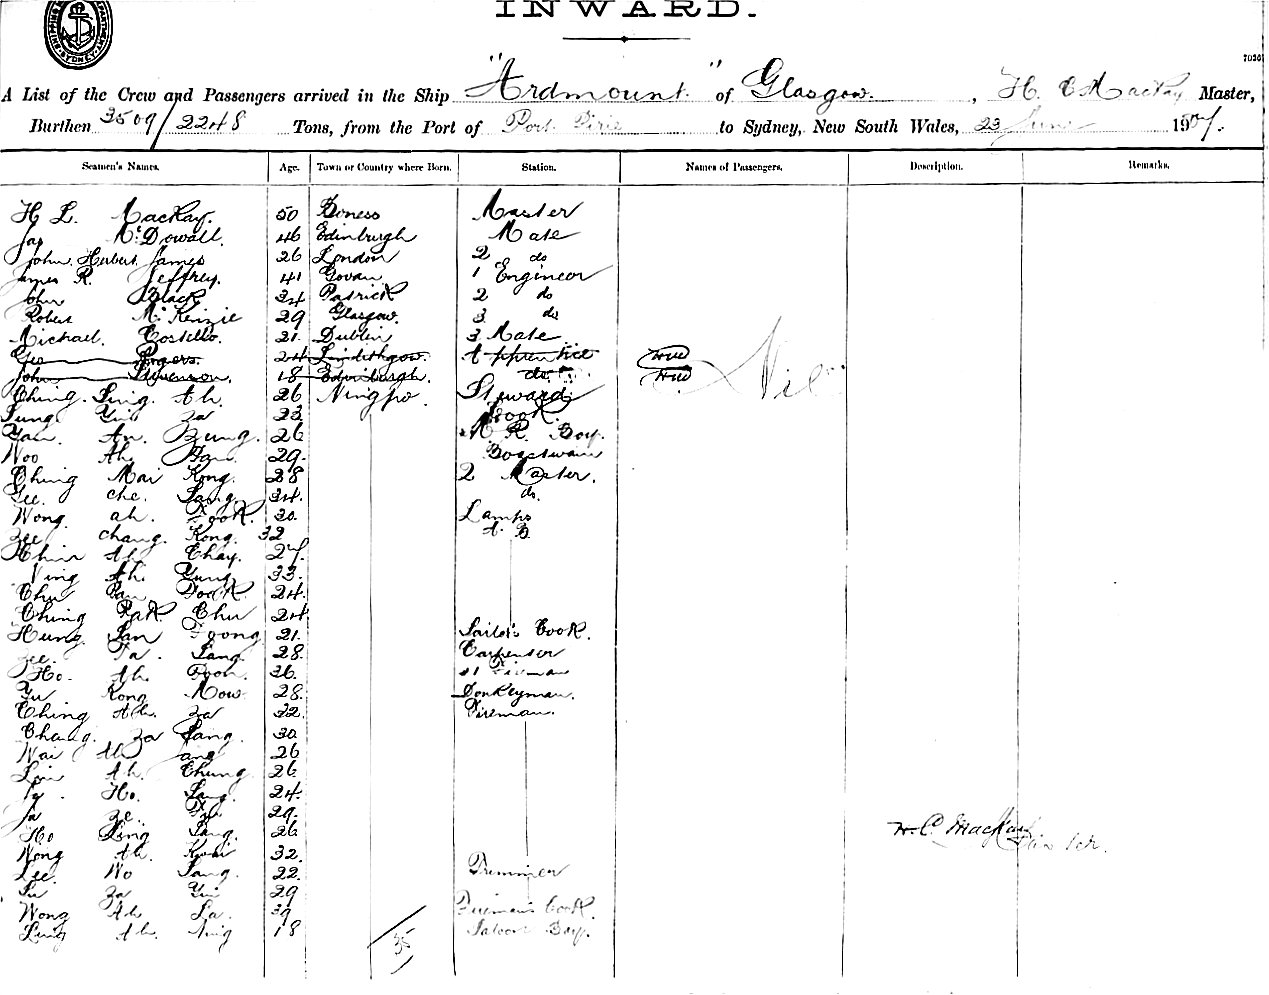 INWARD.
7020
A List of the Crew and Passengers arrived in the Ship "Ardmount" of Glasgow, H. C. Mackay Master,
Burthen 3509/2248 Tons, from the Port of Port Pirie to Sydney, New South Wales, 23 June 1907.
Seamen's Names. Age. Town or Country where Born. Station. Names of Passengers. Description. Remarks.
H L. MacKay. 50 Boness Master
Jas McDowall. 46 Edinburgh Mate
John Herbert James 26 London 2 do
James R. Jeffrey. 41 Govan 1 Engineer
John Black 34 Patrick 2 do
Robert McKenzie 29 Glasgow. 3 do
Michael Costello. 21. Dublin 3 Mate
Geo Rogers. 24 Linlithgow. Apprentice Nil
John Stevenson. 18 Edinburgh. do.
Ching Ling Ah. 26 Ningpo. Steward
Sung Yui Za 23 Cook.
Yan. An. Zung. 26 M. R. Boy.
Woo Ah 29. Boatswain
Ching Mai Kong. 28 2 Master.
Zee. che. Sang. 34. do.
Wong. ah. Fook. 30. Lamps
Zee chang. Kong. 32 A. B.
Chin Ah Chay. 27.
Ning Ah. Yung 33.
Chu Pan Fook. 24.
Ching Pak Chu 24
Hung San Foong 21. Sailor's Cook.
Zee. Ta. Sang. 28. Carpenter
Ho. Ah. Foon. 36. Fireman
Yu Kong Mow. 28. Donkeyman.
Ching Ah. Za 32. Fireman.
Chang. Za Sang. 30.
Wai Ah 26
Ah. Chung. 26.
Ho. Sang. 24.
Ze. 29.
Ho Ling Sang. 26 H. C. Mackay
Wong Ah. 32. Master.
Lee. Wo Sang. 22. Trimmer
Su Za Yui 29
Wong Ah La. 39 Fireman's Cook.
Ling Ah. Ning 18 Saloon Boy.
35